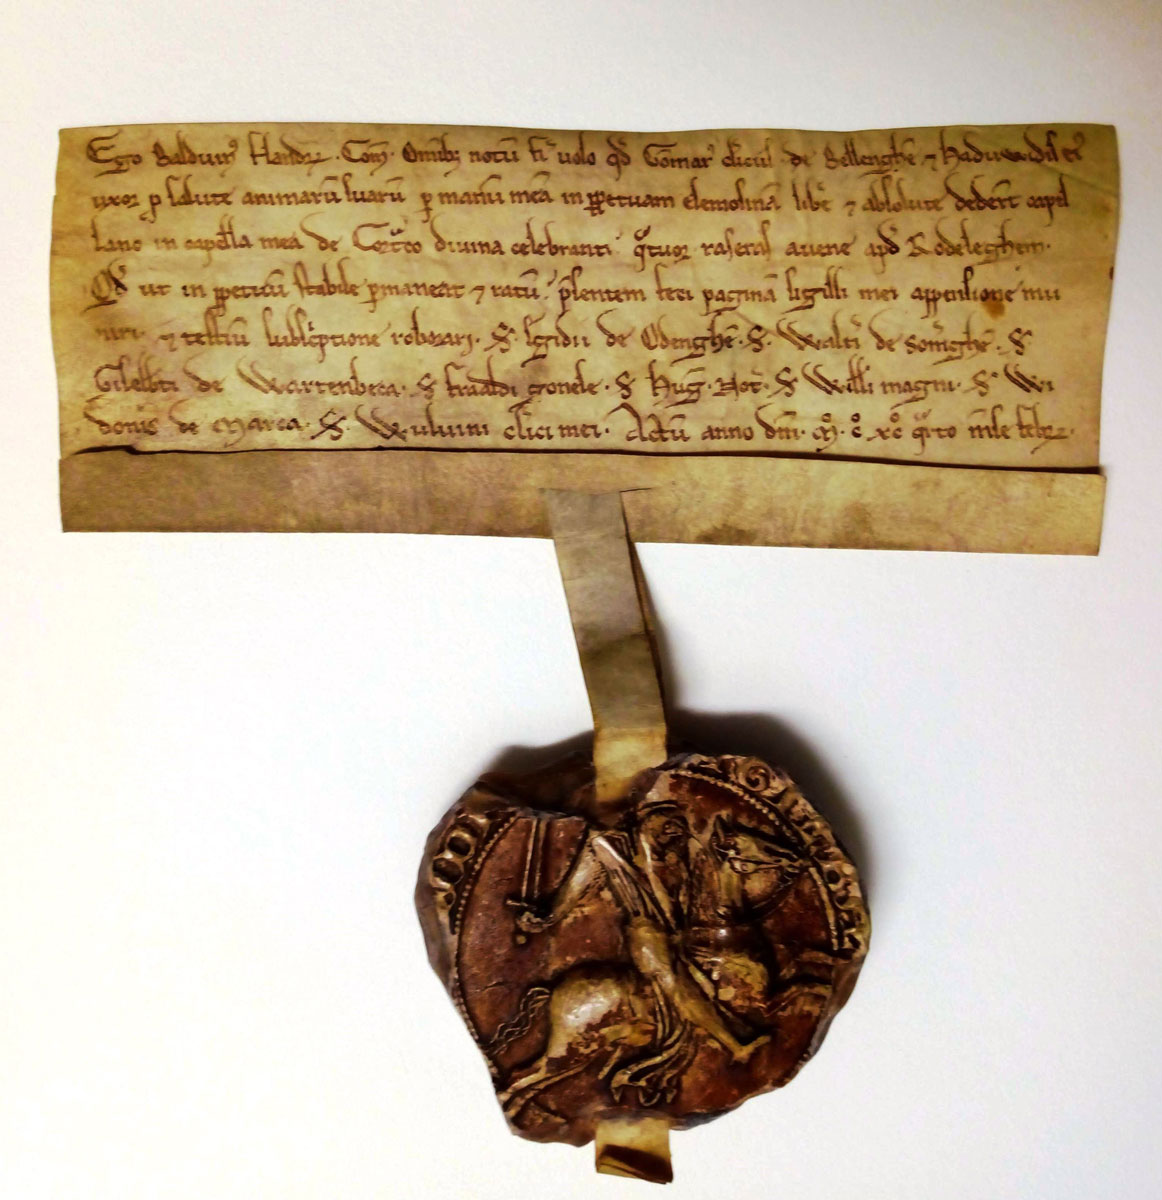 Ego Balduin᷒ flandr̄. Com̄. Omīb; notū fi͛ uolo qd̄ Gomar᷒ clicus̄ de Bellenghē ⁊ Haduuidis e᷒
uxor ꝑ salute animarū suarū ꝑ manū meā in ꝑpetuam elemosinā libe͛ ⁊ absolute dedert̄ capel
lano in capella mea de Cort͛co diuina celebranti qͣtuor raseras auene apd̄ Rodeleghem.
Qd̄ ut in ꝑpetuū stabile ꝑmaneat ⁊ ratū. p͛sentem feci paginā sigilli mei appensione mu
niri. ⁊ testiū subsc͛ptione roborari. S̄. Egidii de Odenghē. S̄. Walt͛i de Som͛ghē. S̄
Gileb͛ti de Wartenbeca. S̄ fraaldi S̄ Hug̅. Not͛. S̄. Will̄i magni. S̄. Wi
donis de Marca. S̄. Wuluini cl̄ici mei. Actū anno dn̄i. Mͦ. Cͦ. xcͦ qͣrto m̄se febr̄.